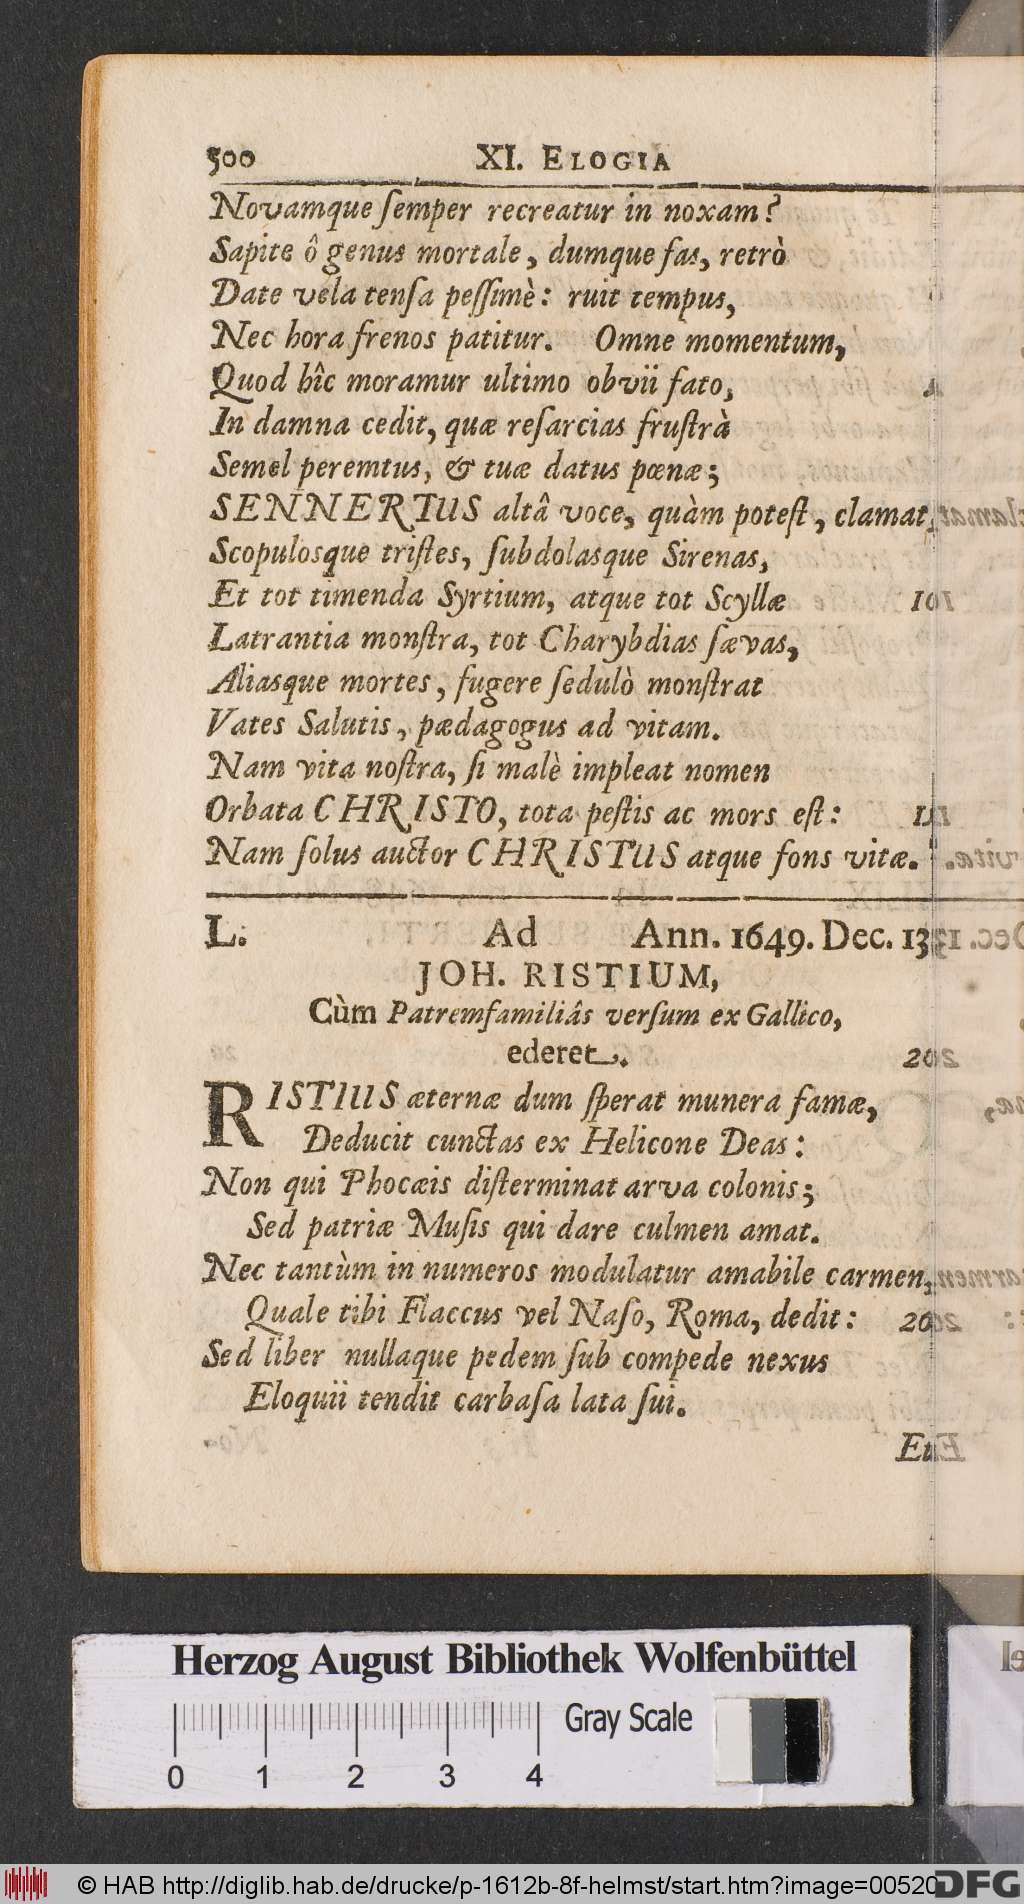 500 XI. ELOGIA
Novamque ſemper recreatur in noxam?
Sapite ô genus mortale, dumque fas, retrò
Date vela tenſa peſſimè: ruit tempus,
Nec hora frenos patitur. Omne momentum,
Quod hîc moramur ultimo obvii fato,
In damna cedit, quæ reſarcias fruſtrà
Semel peremtus, & tuæ datus pœnæ;
SENNERTUS altâ voce, quàm poteſt, clamat,
Scopulosque triſtes, ſubdolasque Sirenas,
Et tot timenda Syrtium, atque tot Scyllæ
Latrantia monſtra, tot Charybdias ſævas,
Aliasque mortes, fugere ſedulò monſtrat
Vates Salutis, pædagogus ad vitam.
Nam vita noſtra, ſi malè impleat nomen
Orbata CHRISTO, tota peſtis ac mors eſt:
Nam ſolus auctor CHRISTUS atque fons vitæ.
L. Ad Ann. 1649. Dec. 13
JOH. RISTIUM,
Cùm Patremfamiliâs verſum ex Gallico,
ederet.
RISTIUS æternæ dum ſperat munera famæ,
Deducit cunctas ex Helicone Deas:
Non qui Phocæis diſterminat arva colonis;
Sed patriæ Muſis qui dare culmen amat.
Nec tantùm in numeros modulatur amabile carmen,
Quale tibi Flaccus vel Naſo, Roma, dedit:
Sed liber nullaque pedem ſub compede nexus
Eloquii tendit carbaſa lata ſui.
Herzog August Bibliothek Wolfenbüttel
Gray Scale
0 1 2 3 4
© HAB http://diglib.hab.de/drucke/p-1612b-8f-helmst/start.htm?image=00520
DFG